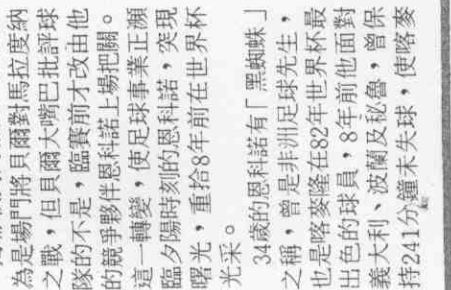 為是場門將貝爾對馬拉度納
之戰，但貝爾大嘴巴批評球
隊的不是，臨賽前才改由他
的競爭夥伴恩科諾上場把關。
這一轉變，使足球事業正瀕
臨夕陽時刻的恩科諾，突現
曙光，重拾8年前在世界杯
光采。
34歲的恩科諾有「黑蜘蛛」
之稱，曾是非洲足球先生，
也是喀麥隆在82年世界杯最
出色的球員，8年前他面對
義大利、波蘭及秘魯，曾保
持241分鐘未失球，使喀麥